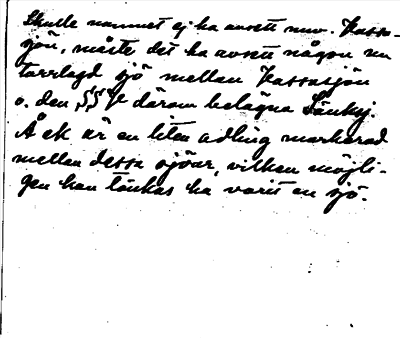 Skulle namnet ej ha avsett nuv. Kassa-
sjön, måste det ha avsett någon nu
torrlagd sjö mellan Kassasjön
o. den SSV därom belägna Lånksj.
Å ek är en liten odling markerad
mellan dessa sjöar, vilken möjli-
gen kan tänkas ha varit en sjö.